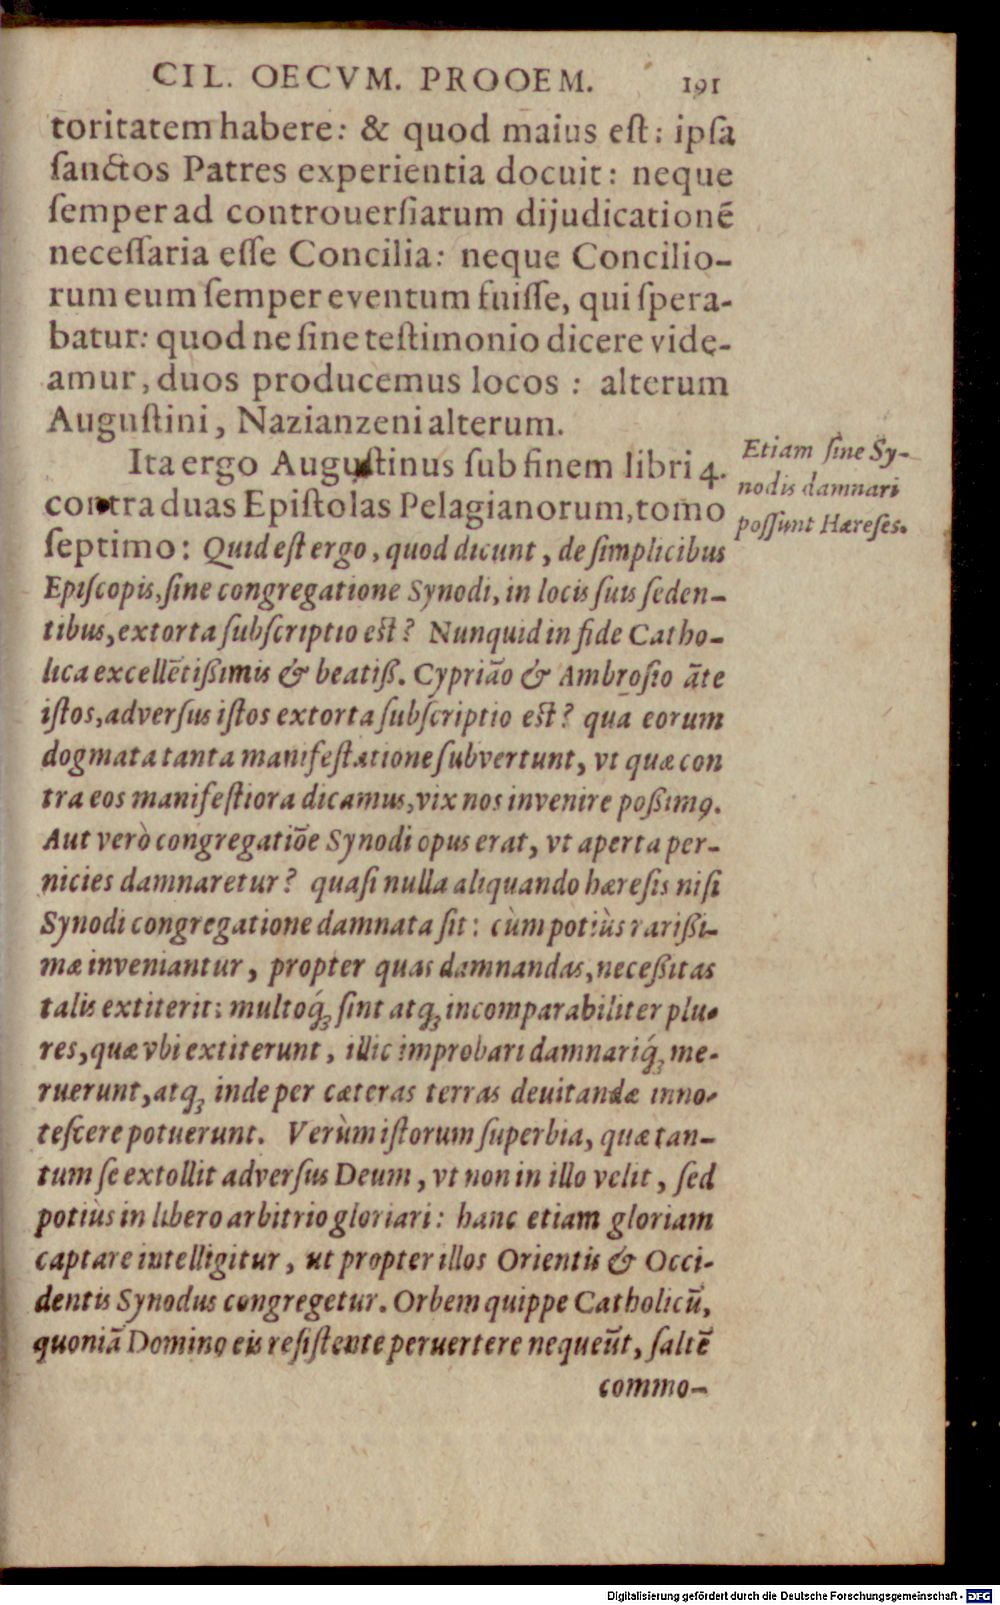 CIL. OECVM. PROOEM. 191
toritatem habere: & quod maius eſt: ipſa
ſanctos Patres experientia docuit: neque
ſemper ad controuerſiarum dijudicationē
neceſſaria eſſe Concilia: neque Concilio-
rum eum ſemper eventum fuiſſe, qui ſpera-
batur: quod ne ſine teſtimonio dicere vide-
amur, duos producemus locos : alterum
Auguſtini, Nazianzeni alterum.
Ita ergo Auguſtinus ſub finem libri 4.
contra duas Epiſtolas Pelagianorum, tomo
ſeptimo: Quid eſt ergo, quod dicunt, de ſimplicibus
Epiſcopis, ſine congregatione Synodi, in locis ſuis ſeden-
tibus, extorta ſubſcriptio eſt? Nunquid in fide Catho-
lica excellētißimis & beatiß. Cypriāo & Ambroſio āte
iſtos, adverſus iſtos extorta ſubſcriptio eſt? qua eorum
dogmata tanta manifeſtatione ſubvertunt, vt quæ con
tra eos manifeſtiora dicamus, vix nos invenire poßimꝰ.
Aut verò congregatiōe Synodi opus erat, vt aperta per-
nicies damnaretur? quaſi nulla aliquando hæreſis niſi
Synodi congregatione damnata ſit: cùm potiùs rarißi-
mæ inveniantur, propter quas damnandas, neceßitas
talis extiterit: multoq́ꝫ ſint atqꝫ incomparabiliter plu-
res, quæ vbi extiterunt, illic improbari damnariq́ꝫ me-
ruerunt, atqꝫ inde per cæteras terras deuitandæ inno-
teſcere potuerunt. Verùm iſtorum ſuperbia, quæ tan-
tum ſe extollit adverſus Deum, vt non in illo velit, ſed
potiùs in libero arbitrio gloriari: hanc etiam gloriam
captare intelligitur, ut propter illos Orientis & Occi-
dentis Synodus congregetur. Orbem quippe Catholicū,
quoniā Domino eis reſiſtente peruertere nequeūt, ſaltē
commo-
Etiam ſine Sy-
nodis damnari
poſſunt Hæreſes.
Digitalisierung gefördert durch die Deutsche Forschungsgemeinschaft - DFG